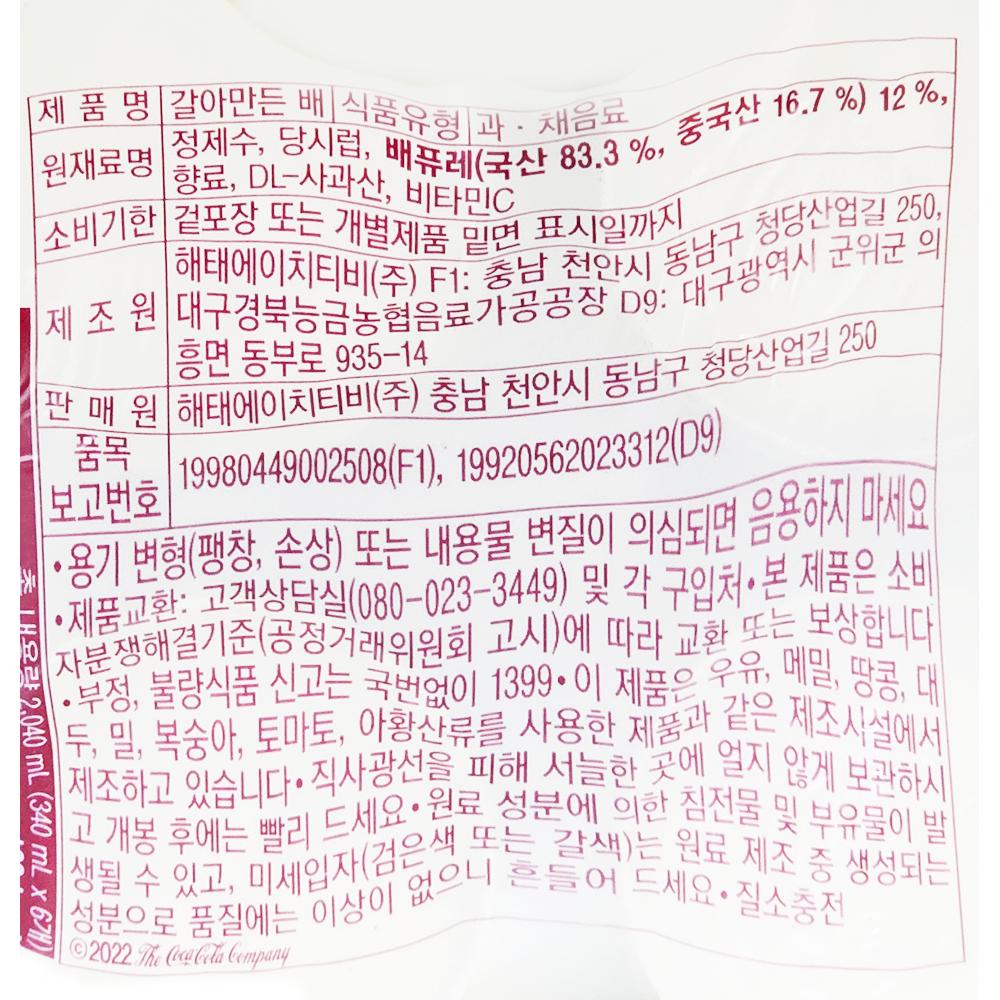 제 품 명 갈아만든 배 식품유형 과 · 채음료
원재료명 정제수, 당시럽, 배퓨레(국산 83.3 %, 중국산 16.7 %) 12 %,
향료, DL-사과산, 비타민C
소비기한 겉포장 또는 개별제품 밑면 표시일까지
제 조 원 해태에이치티비(주) F1: 충남 천안시 동남구 청당산업길 250,
대구경북능금농협음료가공공장 D9: 대구광역시 군위군 의
흥면 동부로 935-14
판 매 원 해태에이치티비(주) 충남 천안시 동남구 청당산업길 250
품목
보고번호 19980449002508(F1), 19920562023312(D9)
•용기 변형(팽창, 손상) 또는 내용물 변질이 의심되면 음용하지 마세요
•제품교환: 고객상담실(080-023-3449) 및 각 구입처•본 제품은 소비
자분쟁해결기준(공정거래위원회 고시)에 따라 교환 또는 보상합니다
•부정, 불량식품 신고는 국번없이 1399•이 제품은 우유, 메밀, 땅콩, 대
두, 밀, 복숭아, 토마토, 아황산류를 사용한 제품과 같은 제조시설에서
제조하고 있습니다•직사광선을 피해 서늘한 곳에 얼지 않게 보관하시
고 개봉 후에는 빨리 드세요•원료 성분에 의한 침전물 및 부유물이 발
생될 수 있고, 미세입자(검은색 또는 갈색)는 원료 제조 중 생성되는
성분으로 품질에는 이상이 없으니 흔들어 드세요•질소충전
©2022 The Coca-Cola Company
총 내용량 2,040 mL (340 mL x 6개)